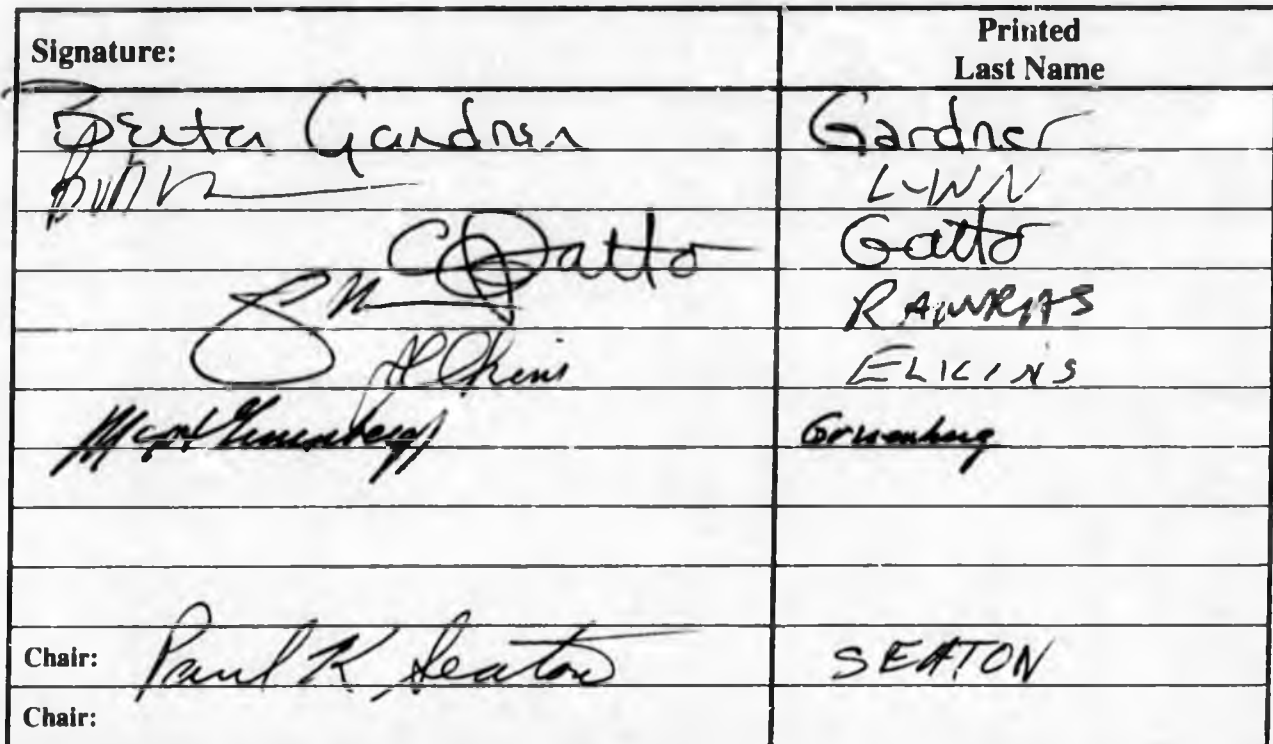 Signature: Printed
Last Name
Berta Gardner Gardner
LYNN
Gatto Gatto
RAMRAS
Elkins ELKINS
Gruenberg Gruenberg
Chair: Paul K Seaton SEATON
Chair: